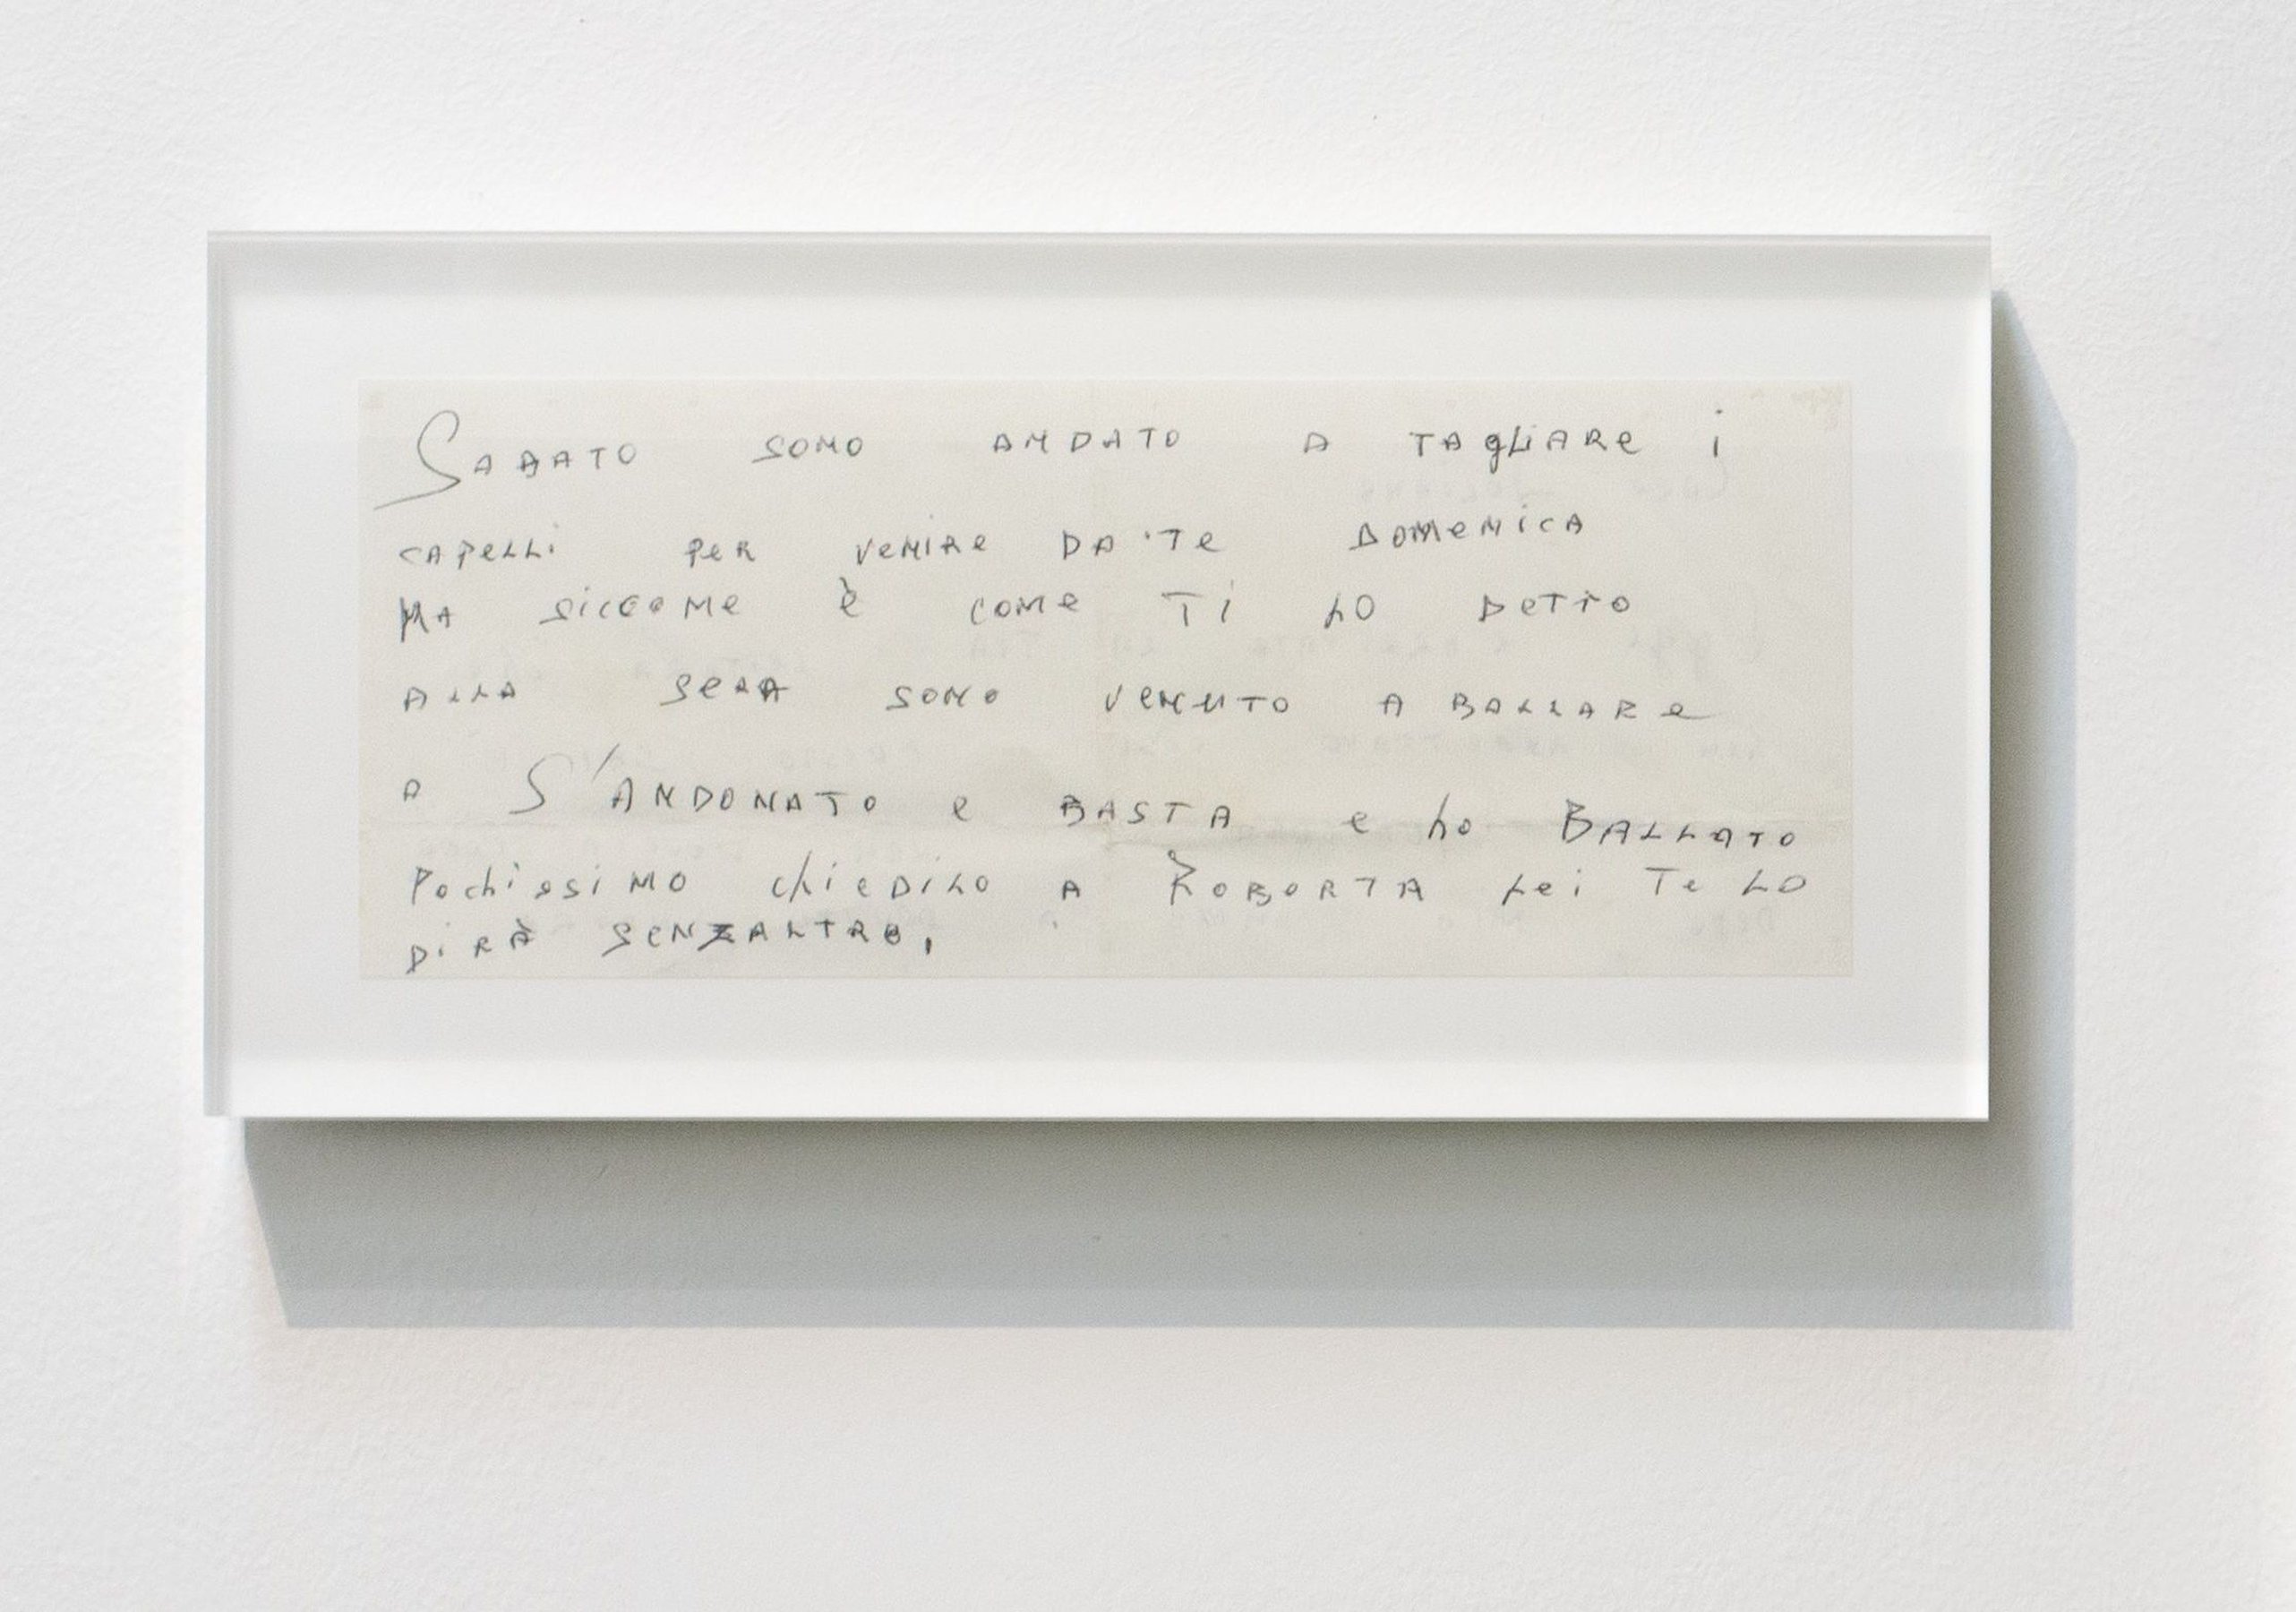 Sabato sono andato a tagliare i
capelli per venire da 'te domenica
Ma siccome è come ti ho detto
alla sera sono venuto a ballare
a S'Andonato e basta e ho Ballato
Pochissimo chiedilo a Roborta lei te lo
dirà senzaltro,